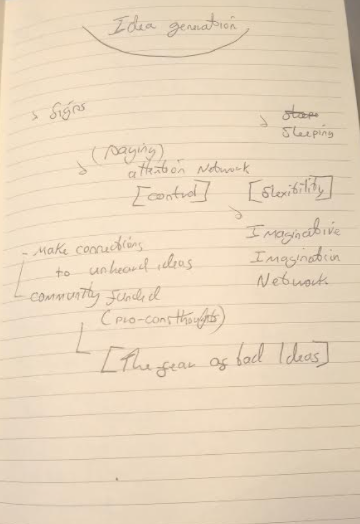 Idea generation
Signs
Sleeping
(paying)
attention Network
[control] [flexibility]
Imaginative
Imagination
Network
- Make connections
to unheard ideas
community funded
(pro-cons thoughts)
[The fear of bad Ideas]